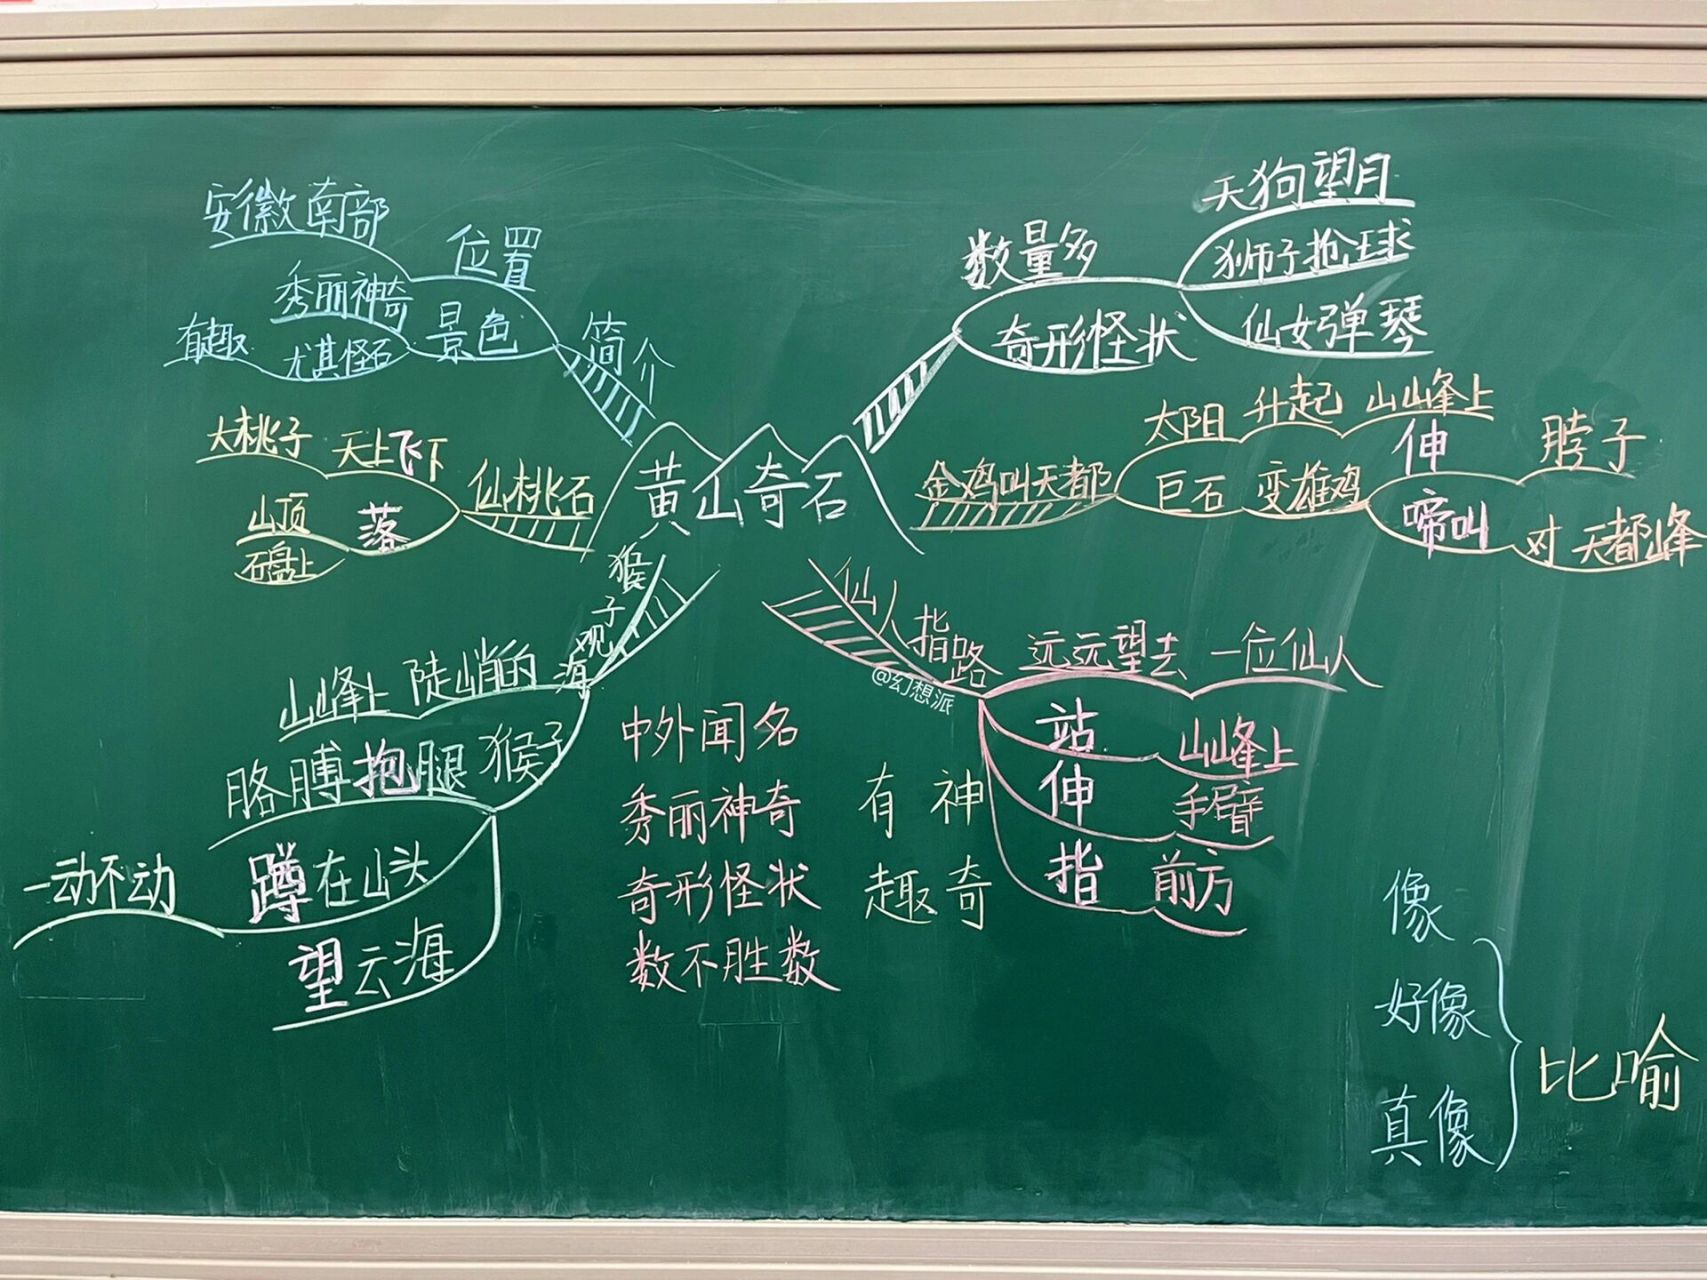 黄山奇石
简介
位置
安徽南部
景色
秀丽神奇
尤其怪石
有趣
仙桃石
大桃子 天上飞下
落
山顶
石盘上
猴子观海
山峰上 陡峭的
胳膊抱腿 猴子
蹲在山头
一动不动
望云海
数量多
奇形怪状
天狗望月
狮子抢球
仙女弹琴
金鸡叫天都
太阳 升起 山峰上
巨石 变雄鸡
伸 脖子
啼叫 对 天都峰
仙人指路
@幻想派
远远望去 一位仙人
站 山峰上
伸 手臂
指 前方
中外闻名
秀丽神奇
奇形怪状
数不胜数
有趣
神奇
像
好像
真像
比喻